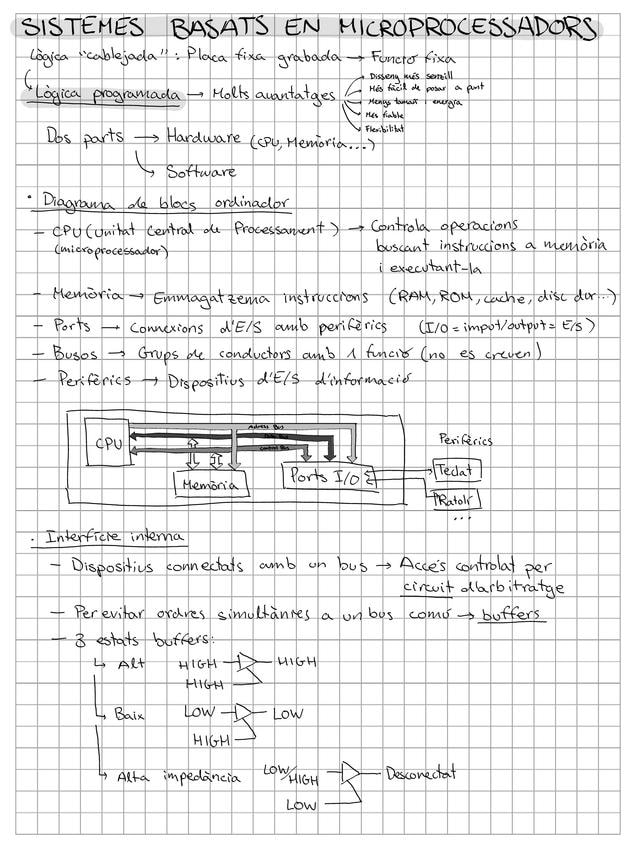 SISTEMES BASATS EN MICROPROCESSADORS
Lògica "cablejada": Placa fixa grabada → Funció fixa
Lògica programada → Molts avantatges
Disseny més senzill
Més fàcil de posar a punt
Menys tamany i energia
Més fiable
Flexibilitat
Dos parts → Hardware (CPU, Memòria...)
Software
· Diagrama de blocs ordinador
- CPU (Unitat Central de Processament) → Controla operacions
(microprocessador) buscant instruccions a memòria
i executant-la
- Memòria → Emmagatzema instruccions (RAM, ROM, cache, disc dur...)
- Ports → Connexions d'E/S amb perifèrics (I/O = input/output = E/S)
- Busos → Grups de conductors amb 1 funció (no es creuen)
- Perifèrics → Dispositius d'E/S d'informació
Adress Bus
Data Bus
Control Bus
CPU
Memòria
Ports I/O
Perifèrics
Teclat
Ratolí
...
· Interfície interna
- Dispositius connectats amb un bus → Accés controlat per
circuit d'arbitratge
- Per evitar ordres simultànies a un bus comú → buffers
- 3 estats buffers:
Alt HIGH HIGH
HIGH
Baix LOW LOW
HIGH
Alta impedància LOW/HIGH Desconectat
LOW